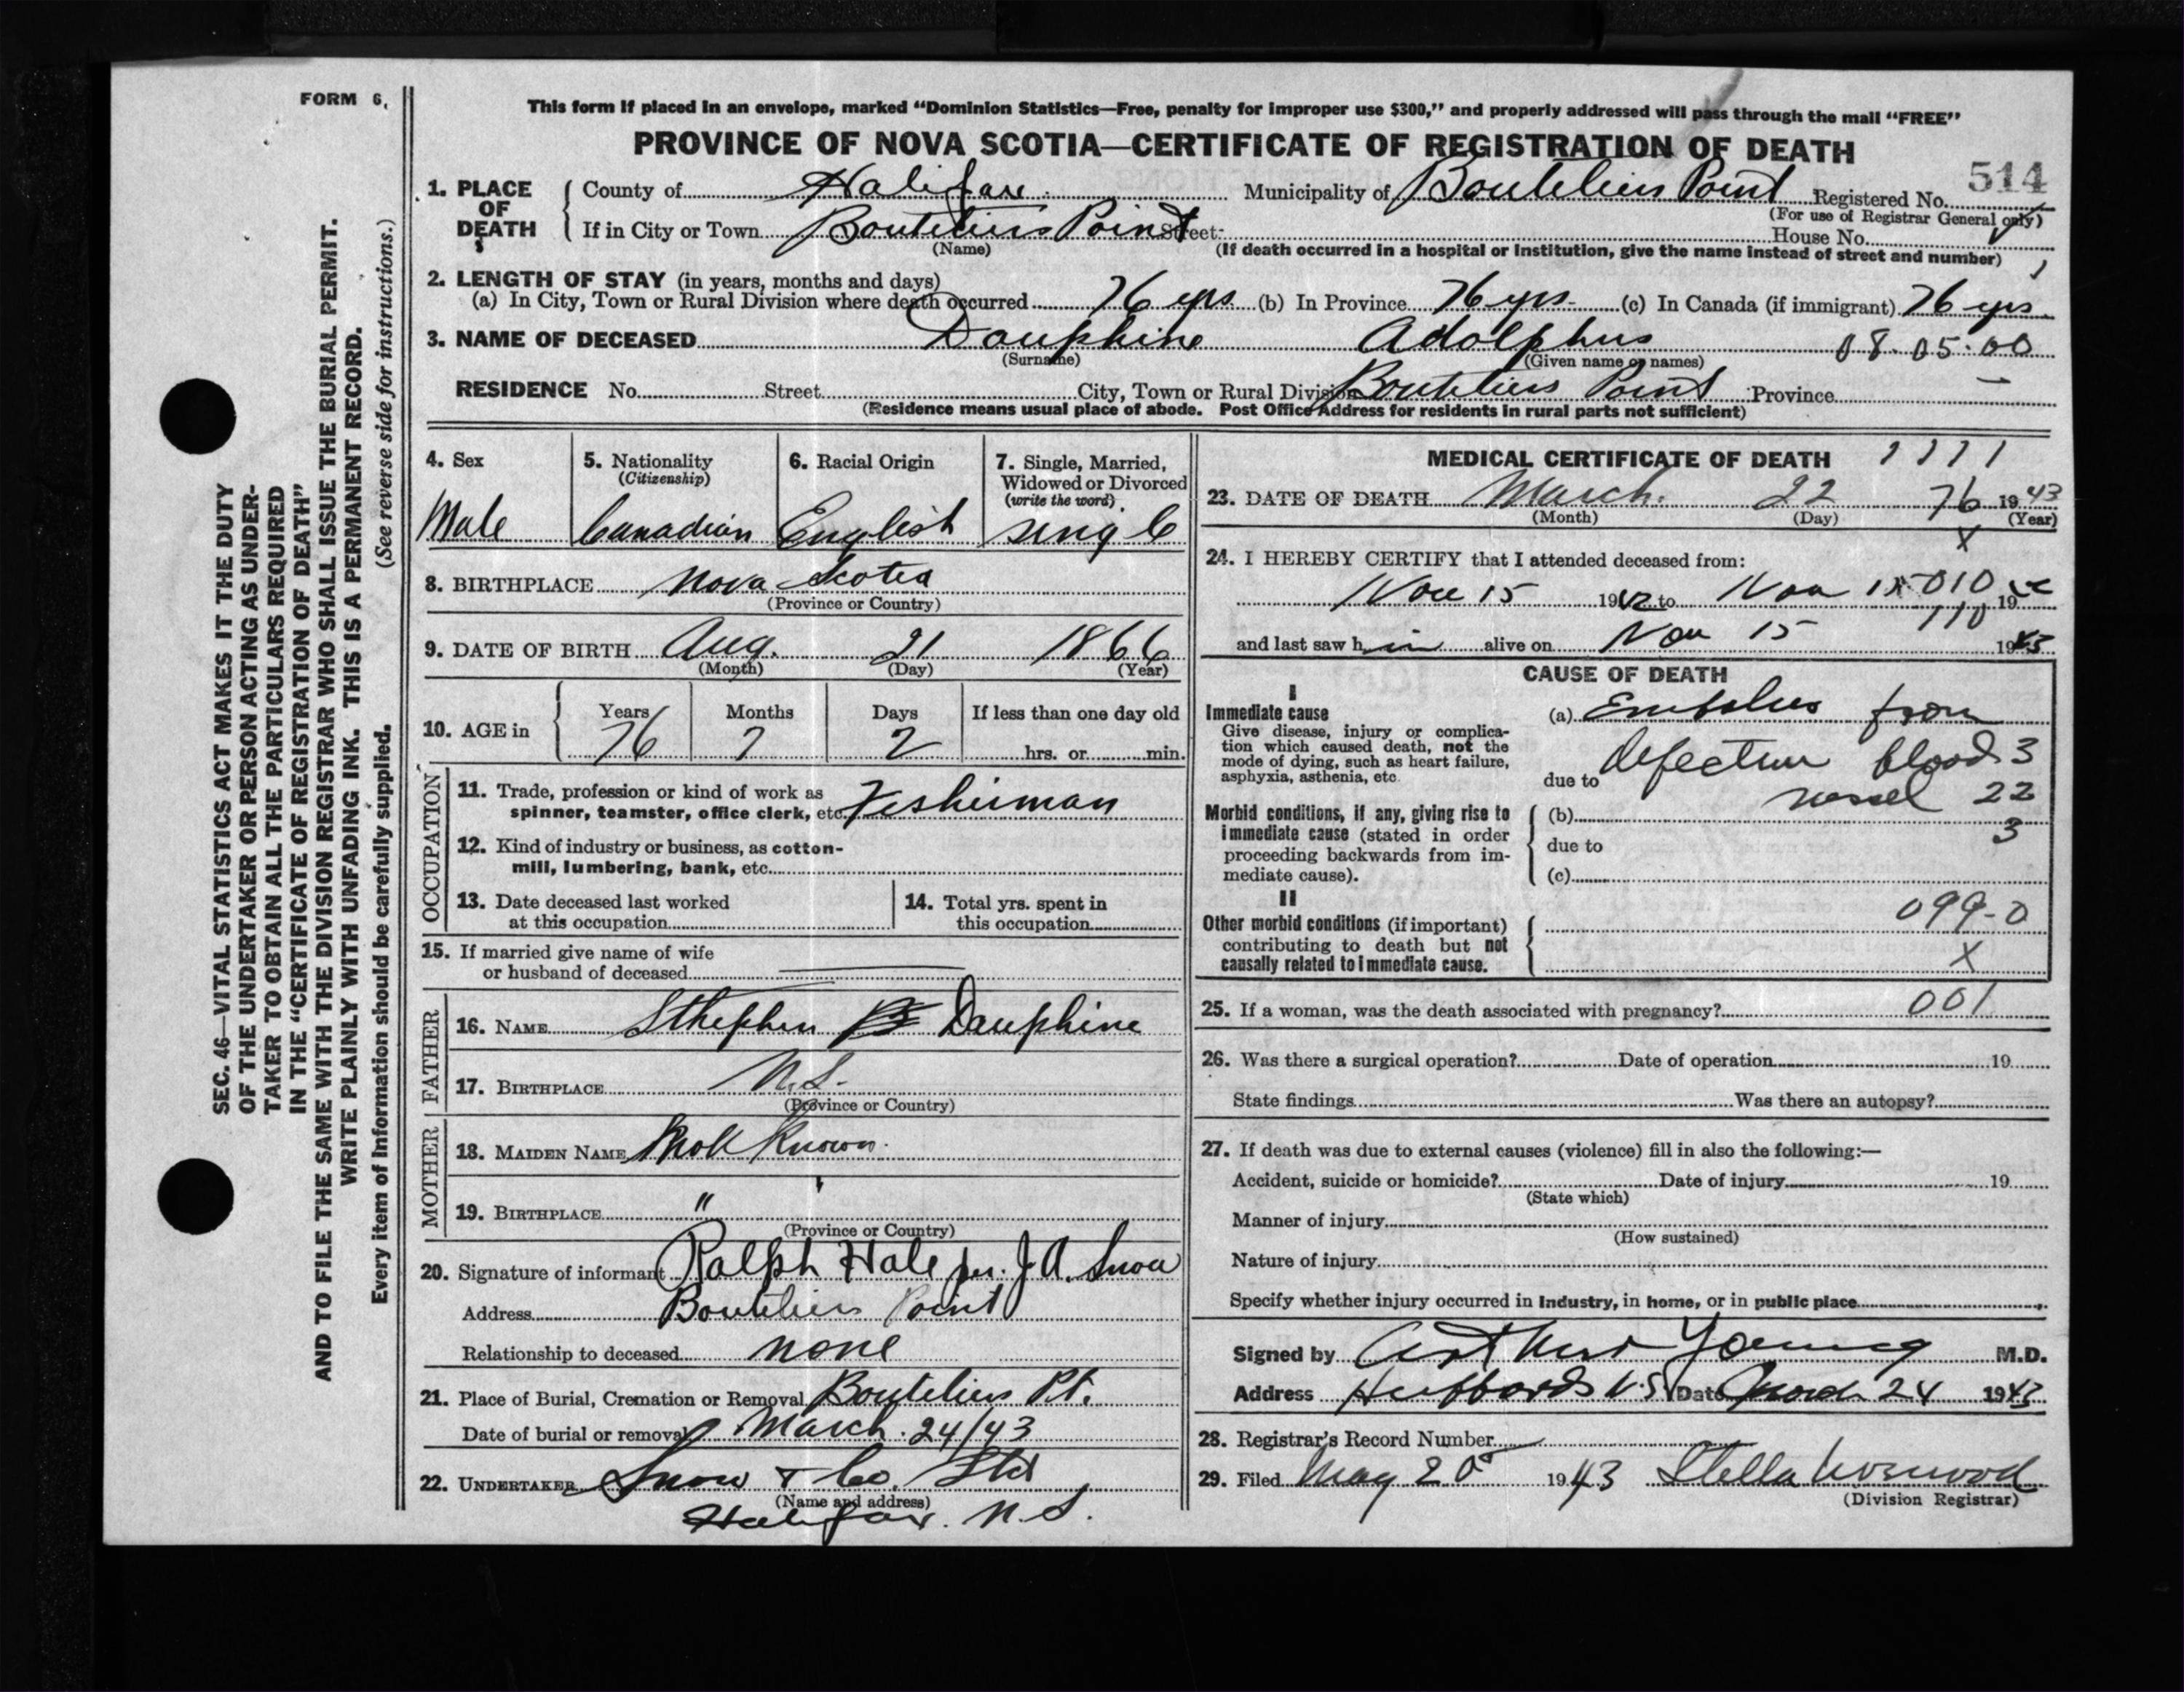 FORM 6.
This form if placed in an envelope, marked “Dominion Statistics—Free, penalty for improper use $300,” and properly addressed will pass through the mail “FREE”
PROVINCE OF NOVA SCOTIA—CERTIFICATE OF REGISTRATION OF DEATH
514
1. PLACE OF DEATH
County of Halifax Municipality of Boutiliers Point Registered No.
(For use of Registrar General only)
If in City or Town Boutiliers Point Street House No.
(Name) (If death occurred in a hospital or institution, give the name instead of street and number)
2. LENGTH OF STAY (in years, months and days)
(a) In City, Town or Rural Division where death occurred 76 yrs. (b) In Province 76 yrs. (c) In Canada (if immigrant) 76 yrs
3. NAME OF DECEASED Dauphine Adolphus 08.05.00
(Surname) (Given name or names)
RESIDENCE No. Street City, Town or Rural Division Boutiliers Point Province —
(Residence means usual place of abode. Post Office Address for residents in rural parts not sufficient)
4. Sex
Male
5. Nationality
(Citizenship)
Canadian
6. Racial Origin
English
7. Single, Married,
Widowed or Divorced
(write the word)
single
8. BIRTHPLACE Nova Scotia
(Province or Country)
9. DATE OF BIRTH Aug. 21 1866
(Month) (Day) (Year)
10. AGE in
Years Months Days If less than one day old
76 7 2 hrs. or min.
OCCUPATION
11. Trade, profession or kind of work as
spinner, teamster, office clerk, etc. Fisherman
12. Kind of industry or business, as cotton-
mill, lumbering, bank, etc.
13. Date deceased last worked
at this occupation
14. Total yrs. spent in
this occupation
15. If married give name of wife
or husband of deceased
FATHER
16. NAME Sthephen Dauphine
17. BIRTHPLACE N.S.
(Province or Country)
MOTHER
18. MAIDEN NAME Not Known.
19. BIRTHPLACE "
(Province or Country)
20. Signature of informant Ralph Hale per. J.A. Snow
Address Boutiliers Point
Relationship to deceased none
21. Place of Burial, Cremation or Removal Boutiliers Pt.
Date of burial or removal March. 24/43
22. UNDERTAKER Snow & Co. Ltd
(Name and address)
Halifax. N.S.
MEDICAL CERTIFICATE OF DEATH 1111
23. DATE OF DEATH March. 22 76 1943
(Month) (Day) (Year)
X
24. I HEREBY CERTIFY that I attended deceased from:
Nov 15 1942 to Nov 15 010 19
110
and last saw h im alive on Nov 15 1943
CAUSE OF DEATH
I
Immediate cause
Give disease, injury or complica-
tion which caused death, not the
mode of dying, such as heart failure,
asphyxia, asthenia, etc.
(a) Embolus from
due to defective blood 3
vessel 22
3
Morbid conditions, if any, giving rise to
immediate cause (stated in order
proceeding backwards from im-
mediate cause).
(b)
due to
(c)
II
Other morbid conditions (if important)
contributing to death but not
causally related to immediate cause.
099-0
X
25. If a woman, was the death associated with pregnancy? 001
26. Was there a surgical operation? Date of operation 19
State findings Was there an autopsy?
27. If death was due to external causes (violence) fill in also the following:—
Accident, suicide or homicide? Date of injury 19
(State which)
Manner of injury
(How sustained)
Nature of injury
Specify whether injury occurred in industry, in home, or in public place
Signed by Arthur Young M.D.
Address Hubbards N.S. Date March 24 1943
28. Registrar's Record Number
29. Filed May 20 1943 Stella
(Division Registrar)
SEC. 46—VITAL STATISTICS ACT MAKES IT THE DUTY
OF THE UNDERTAKER OR PERSON ACTING AS UNDER-
TAKER TO OBTAIN ALL THE PARTICULARS REQUIRED
IN THE “CERTIFICATE OF REGISTRATION OF DEATH”
AND TO FILE THE SAME WITH THE DIVISION REGISTRAR WHO SHALL ISSUE THE BURIAL PERMIT.
WRITE PLAINLY WITH UNFADING INK. THIS IS A PERMANENT RECORD.
Every item of information should be carefully supplied. (See reverse side for instructions.)